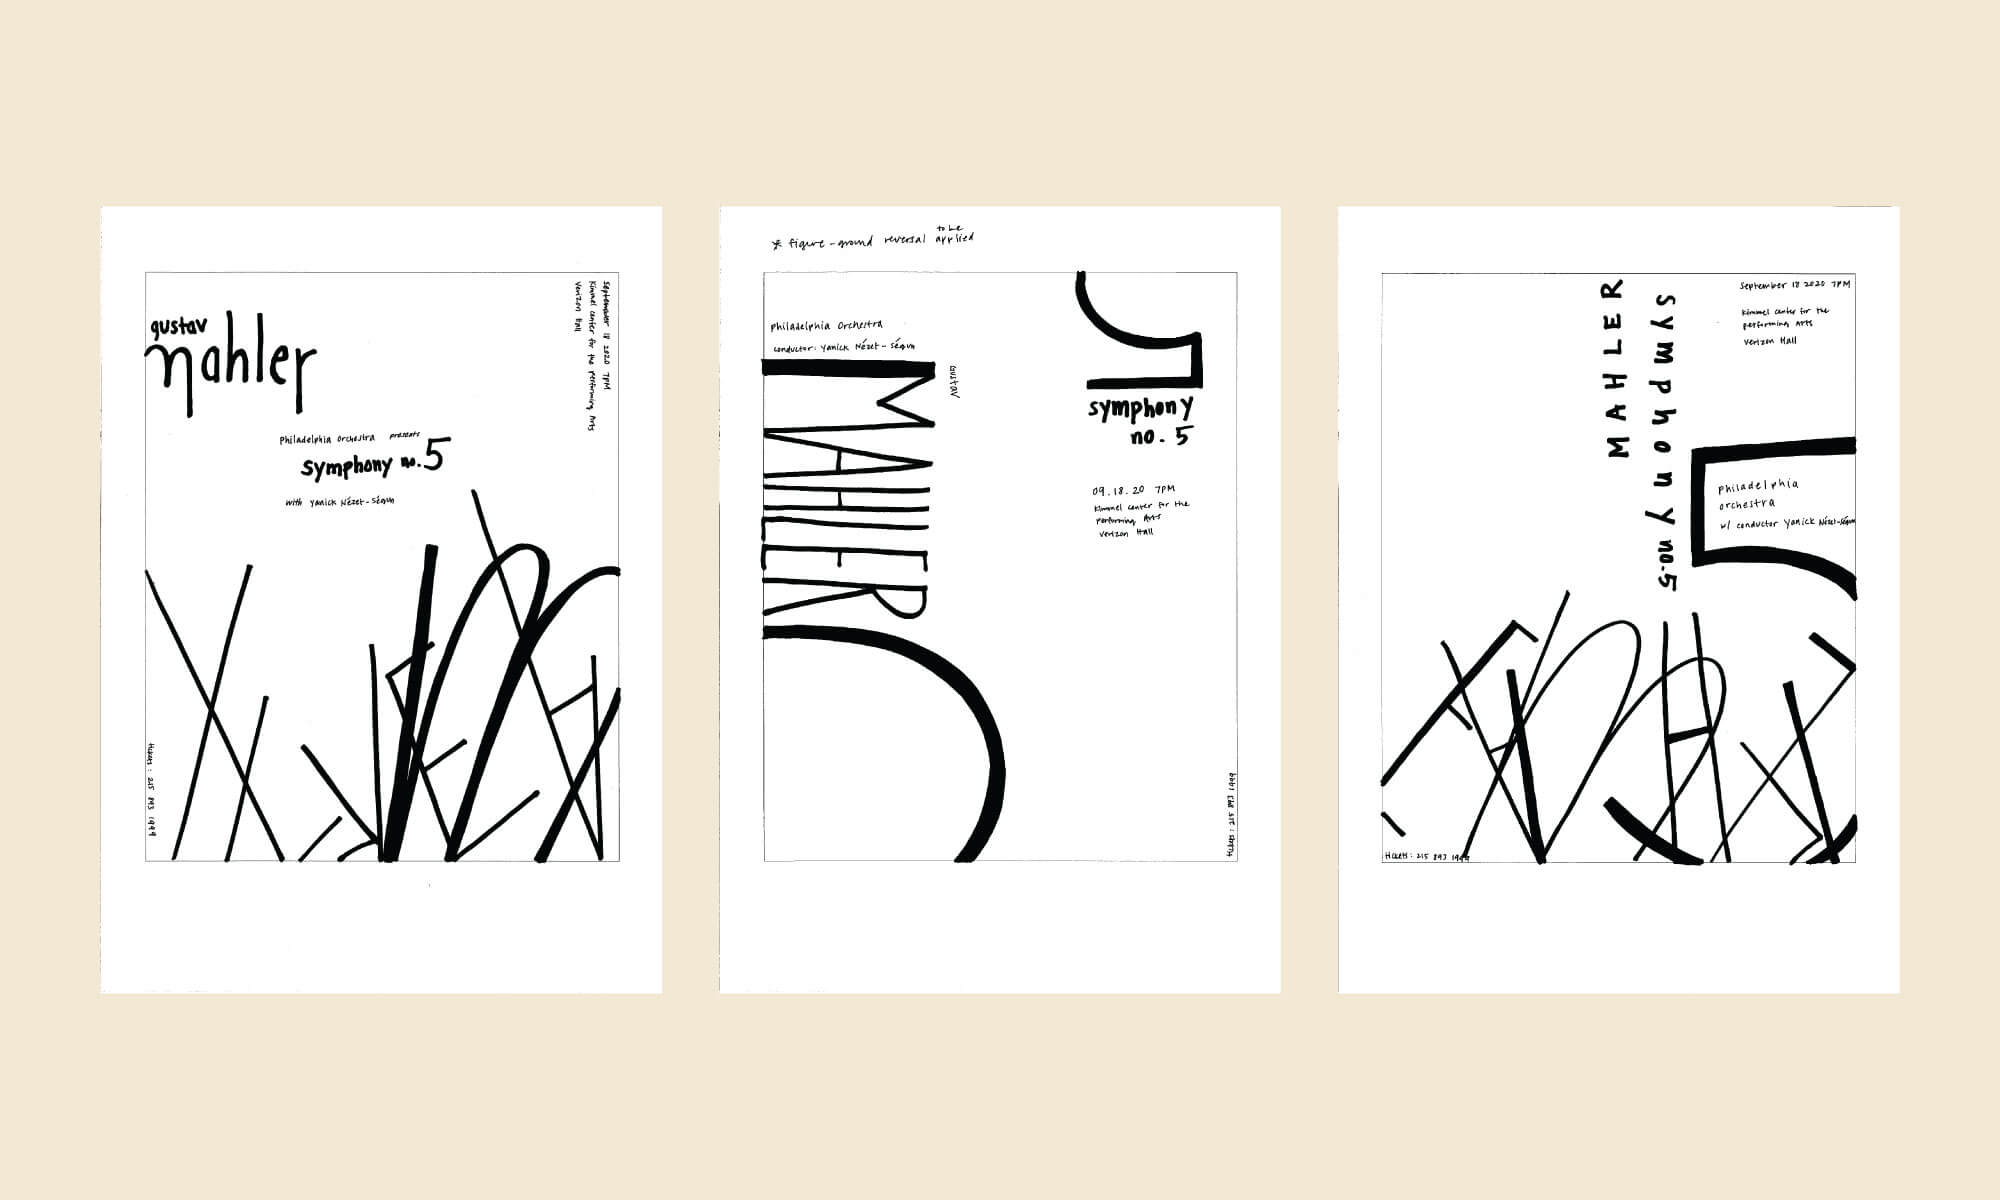 gustav
mahler
september 18 2020 7PM
Kimmel center for the performing Arts
Verizon Hall
Philadelphia Orchestra presents
symphony no. 5
with Yanick Nézet-Ségun
tickets: 215 893 1999
* figure-ground reversal to be applied
Philadelphia Orchestra
conductor: Yanick Nézet-Ségun
MAHLER
GUSTAV
5
symphony
no. 5
09.18.20 7PM
Kimmel center for the
performing Arts
Verizon Hall
tickets: 215 893 1999
MAHLER
symphony no.5
September 18 2020 7PM
Kimmel center for the
performing Arts
Verizon Hall
5
philadelphia
orchestra
w/ conductor Yanick Nézet-Ségun
tickets: 215 893 1999